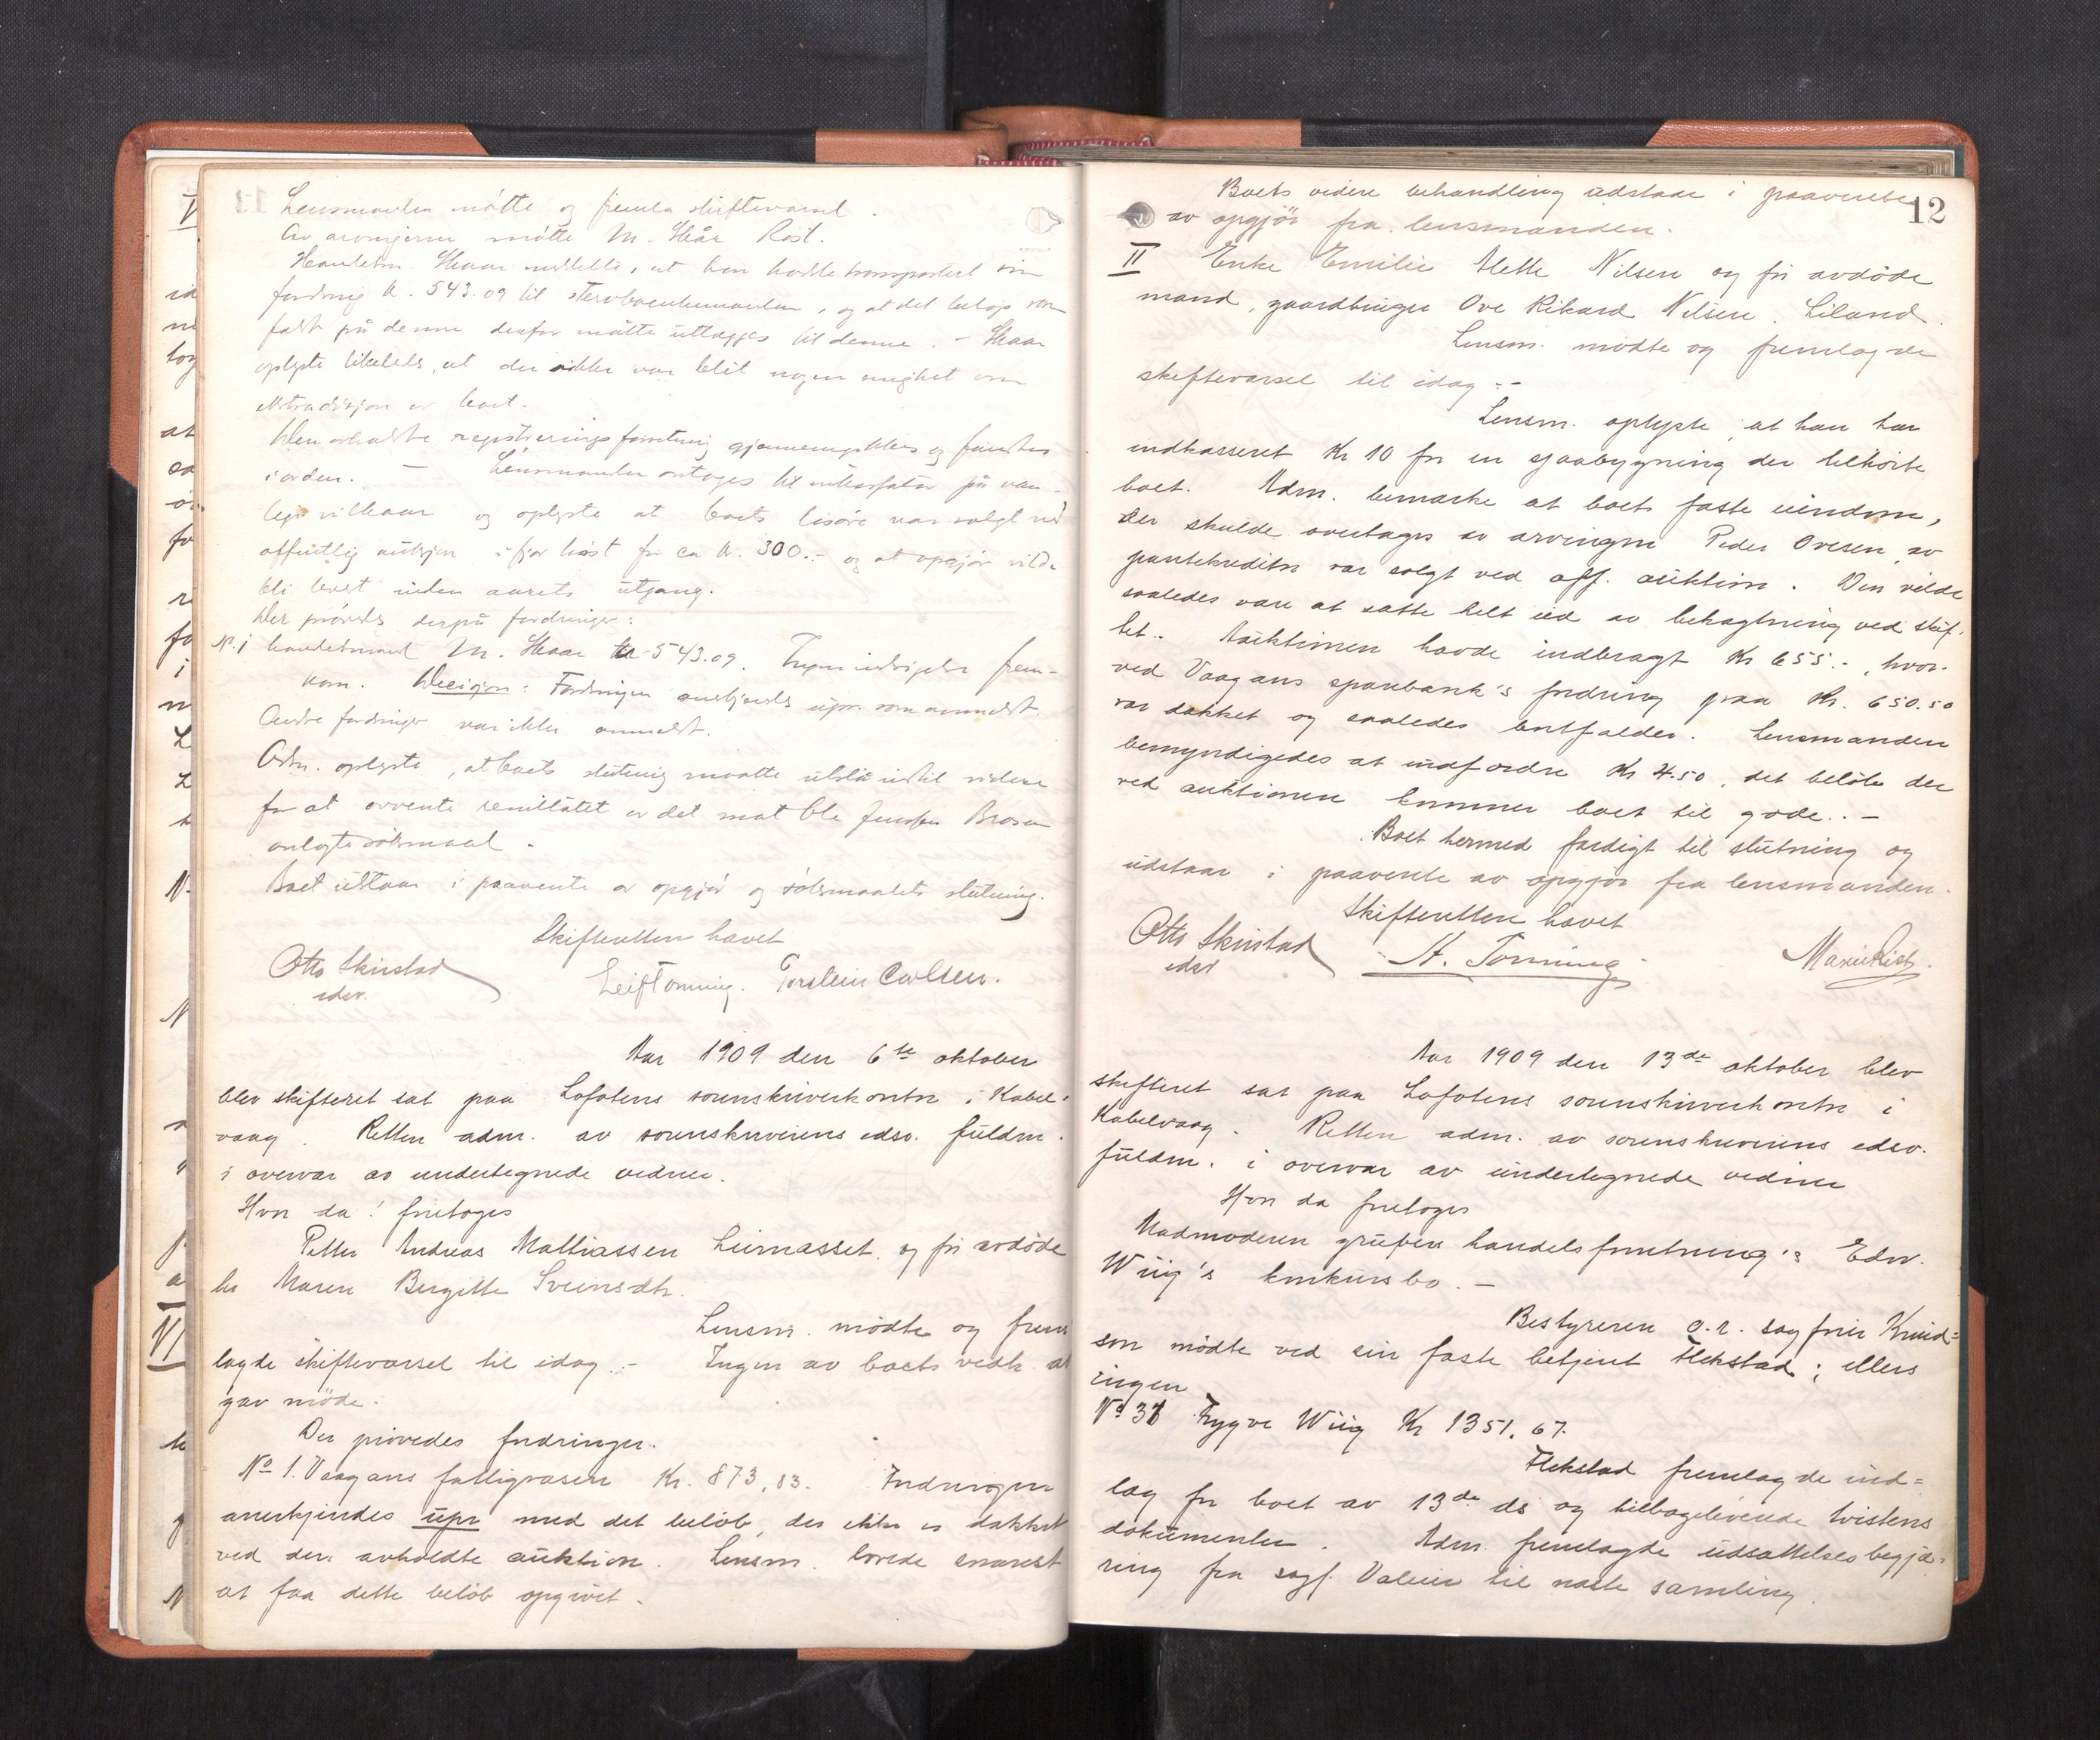 Lensmanden møtte og fremla skiftevarsel.
Av arvingerne møtte M. Skår Røst.
Handelsm. Skaar meddelte, at han hadde transportert sin
fordring kr. 543.09 til stervboenkemanden, og at det beløp som
faldt på denne derfor måtte utlægges til denne. – Skaar
oplyste likeledes, at der ikke var blit nogen enighet om
ekstradisjon av boet.
Den avholdte registreringsforretning gjennemgikkes og fandtes
i orden. – Lensmanden antages til inkassator på van-
lige vilkaar og oplyste at boets løsøre var solgt ved
offentlig auksjon i fjor høst for ca kr. 300.- og at opgjør vilde
bli levert inden aarets utgang.
Der prøvedes derpå fordringer:
Nr. 1 handelsmand M. Skaar kr 543.09. Ingen indsigelse frem-
kom. Decisjon: Fordringen anerkjendes upr. som anmeldt.
Andre fordringer var ikke anmeldt.
Adm. oplyste, at boets slutning maatte utstå indtil videre
for at avvente resultatet av det mot
anlagte søksmaal.
Boet utstaar i paavente av opgjør og søksmaalets slutning.
Skifteretten hævet
Otto Skirstad
edsv.
Leif Tonning. Torstein Carlsen.
Aar 1909 den 6te oktober
blev skifteret sat paa Lofotens sorenskriverkontor i Kabel-
vaag. Retten adm. av sorenskriverens edsv. fuldm.
i overvær av undertegnede vidner.
Hvor da! foretoges
Petter Andreas Mathiassen Leirnasset og for avdøde
hr Maren Bergitte Sveinsdtr.
Lensm. mødte og frem
lagde skiftevarsel til idag.- Ingen av boets vedk.
gav møde.
Der prøvedes fordringer.
No 1. Vaagans fattigvæsen Kr. 873,03. Fordringen
anerkjendes upr med det beløb, der ikke er dækket
ved den avholdte auktion. Lensm. lovede snarest
at faa dette beløb opgivet.
12
Boets videre behandling udstaar i paavente
av opgjør fra lensmanden.
II Enke Emilie Mette Nilsen og for avdøde
mand, gaardbruger Ove Rikard Nilsen. Liland.
Lensm. mødte og fremlagde
skiftevarsel til idag.-
Lensm. oplyste, at han har
indkasseret Kr 10 for en sjaabygning der tilhørte
boet. Adm. bemærke at boets faste eiendom,
der skulde overtages av arvingen Peder Ovesen, av
pantekreditor var solgt ved off. auktion. Den vilde
saaledes være at sætte helt ud av betragtning ved skif-
tet. Auktionen havde indbragt Kr 655.-, hvor-
ved Vaagans sparebank's fordring paa Kr. 650.50
var dækket og saaledes bortfalder. Lensmanden
bemyndigedes at indfordre Kr 4.50, det beløb der
ved auktionen kommer boet til gode. –
Boet hermed færdigt til slutning og
udstaar i paavente av opgjør fra lensmanden.
Skifteretten hævet
Otto Skirstad
edsv
H. Tonning
Aar 1909 den 13de oktober blev
skifteret sat paa Lofotens sorenskriverkontor i
Kabelvaag. Retten adm. av sorenskriverens edsv.
fuldm. i overvær av undertegnede vidner
Hvor da foretoges
Madmoderen gruben handelsforretning's Edv.
Wiig's konkursbo. –
Bestyreren o.r. sagfører Knud-
son mødte ved sin faste betjent Flekstad; ellers
ingen
No 37 Trygve Wiig Kr 1351.67.
Flekstad fremlagde ind-
læg for boet av 13de ds og tilbageleverede tvistens
dokumenter. Adm. fremlagde udsættelsesbegjæ-
ring fra sagf. Valeur til næste samling.